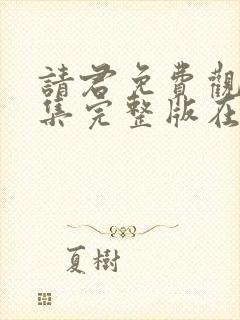 請君免費觀
集完整版在
夏樹